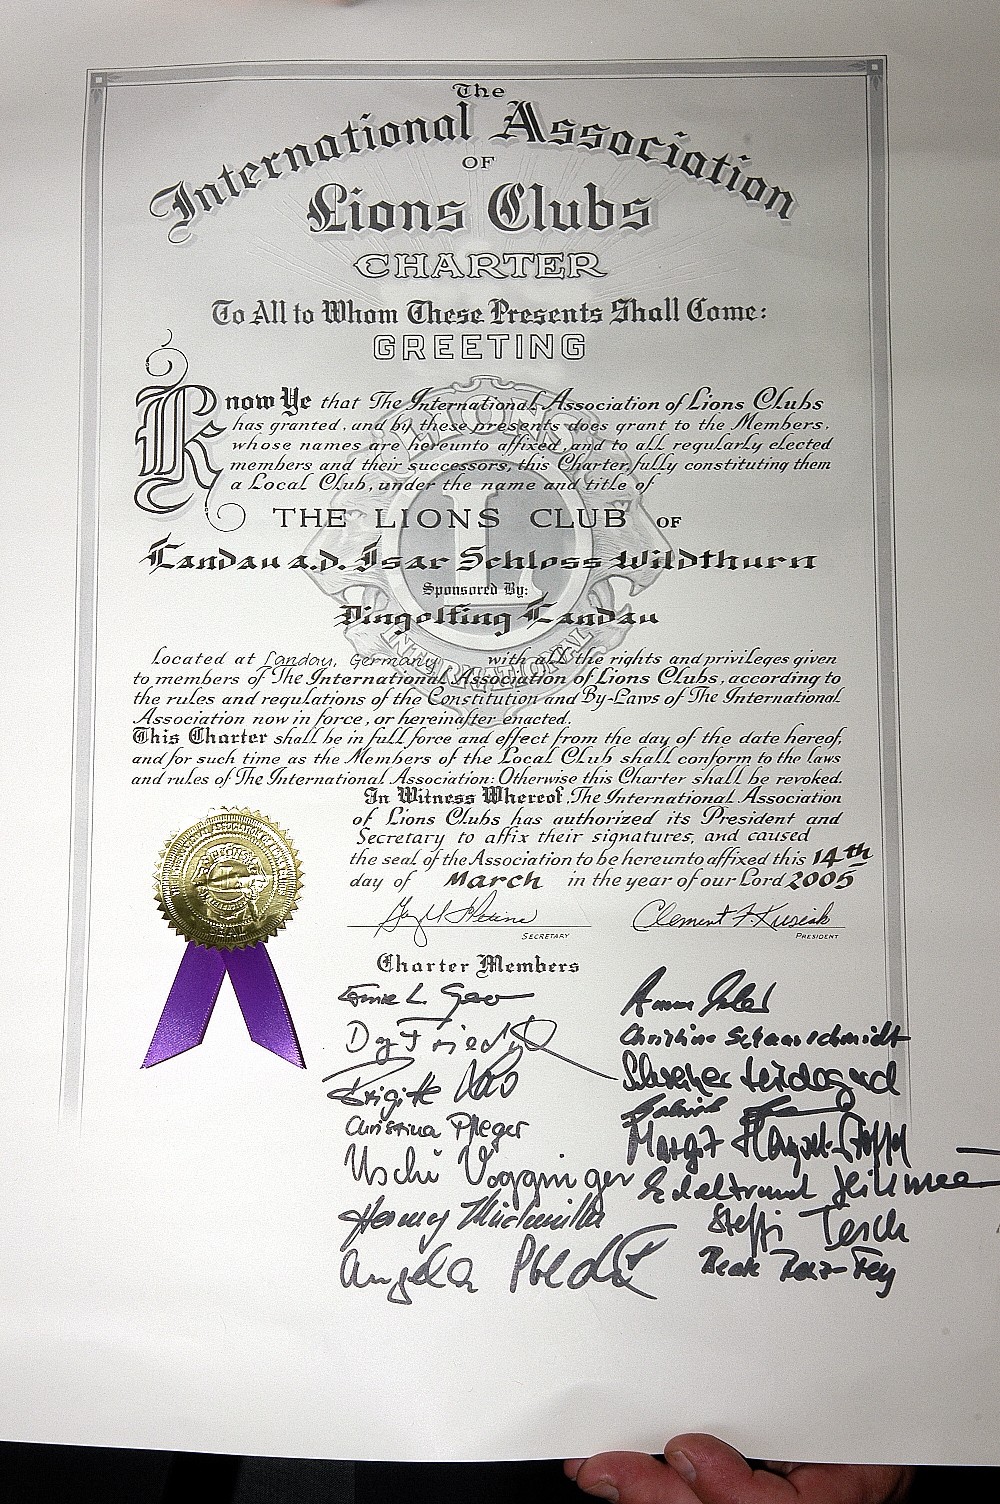 The
International Association
OF
Lions Clubs
CHARTER
To All to Whom These Presents Shall Come:
GREETING
Know Ye that The International Association of Lions Clubs
has granted, and by these presents does grant to the Members,
whose names are hereunto affixed, and to all regularly elected
members and their successors, this Charter, fully constituting them
a Local Club, under the name and title of
THE LIONS CLUB OF
Landau a.d. Isar Schloss Wildthurn
Sponsored By:
Dingolfing Landau
Located at Landau, Germany with all the rights and privileges given
to members of The International Association of Lions Clubs, according to
the rules and regulations of the Constitution and By-Laws of The International
Association now in force, or hereinafter enacted.
This Charter shall be in full force and effect from the day of the date hereof,
and for such time as the Members of the Local Club shall conform to the laws
and rules of The International Association: Otherwise this Charter shall be revoked.
In Witness Whereof, The International Association
of Lions Clubs has authorized its President and
Secretary to affix their signatures, and caused
the seal of the Association to be hereunto affixed this 14th
day of March in the year of our Lord 2005
Clement F. Kusiak
SECRETARY PRESIDENT
Charter Members
Christine Scharschmidt
Brigitte
Christina Pfleger
Margit
Uschi Vogginger
Edeltraud
Steffi Tesch
Angela
Beate
LIONS
L
INTERNATIONAL